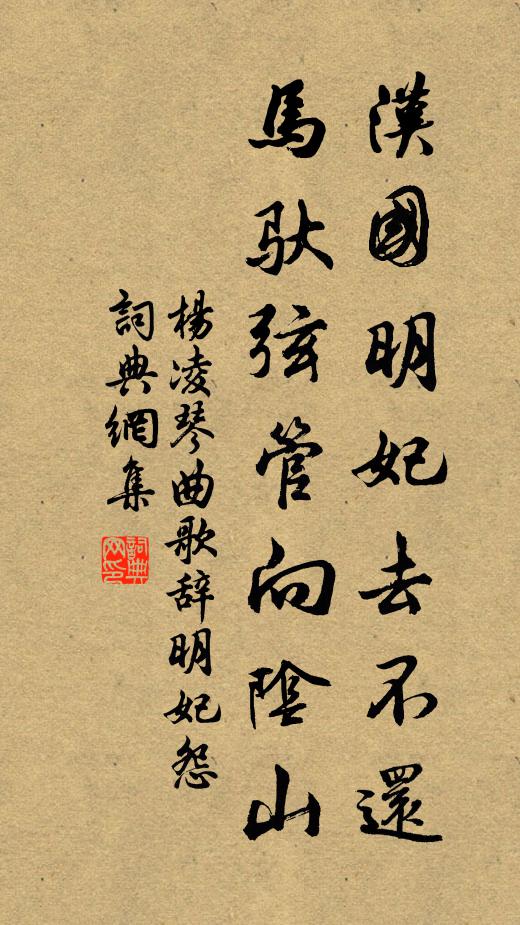 漢國明妃去不還
馬馱弦管向陰山
楊凌琴曲歌辞明妃怨
詞典網集
詞典
网印